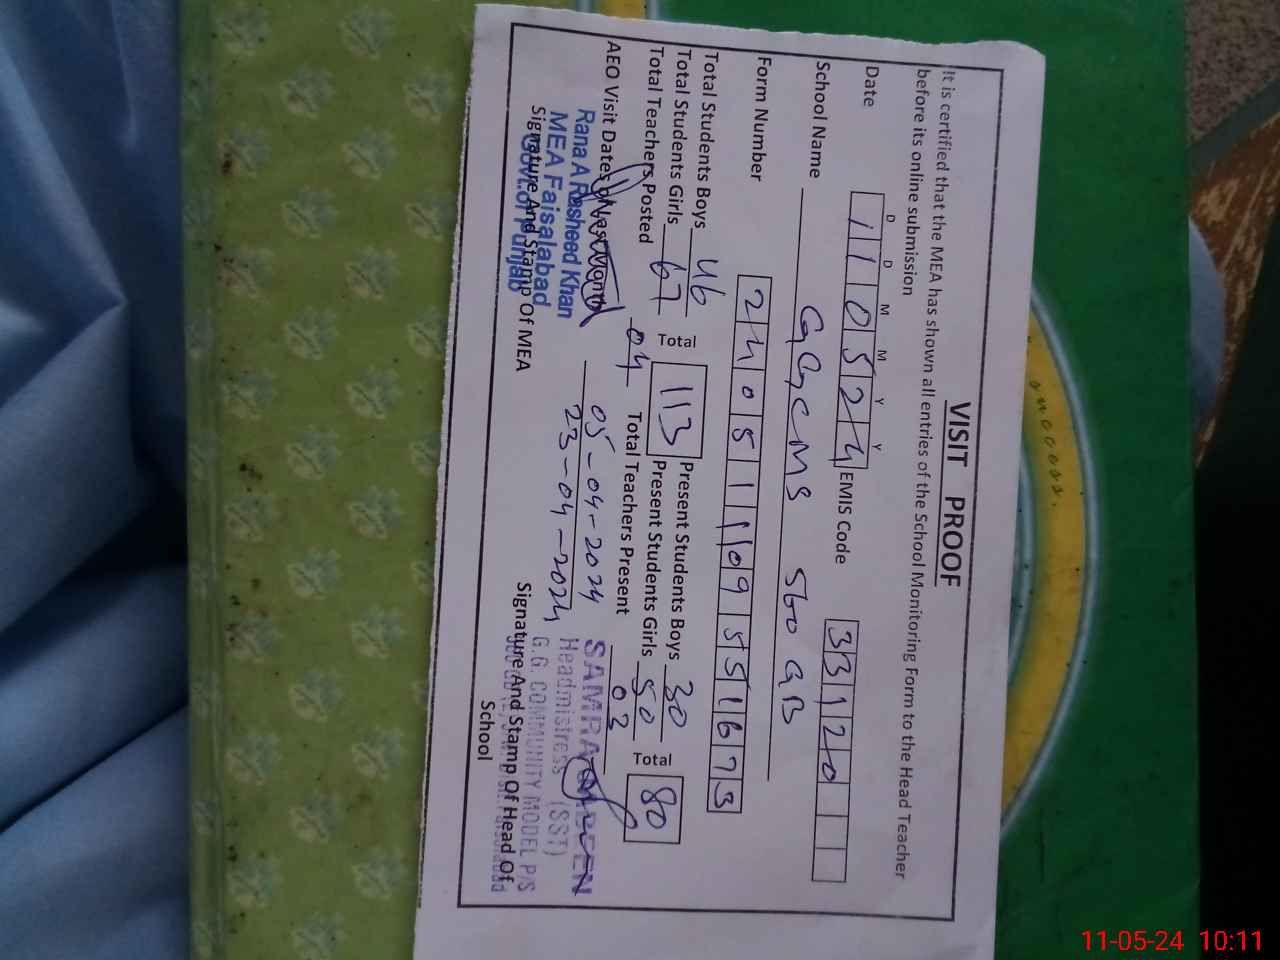 VISIT PROOF
It is certified that the MEA has shown all entries of the School Monitoring Form to the Head Teacher
before its online submission
D D M M Y Y
Date 110524 EMIS Code 33120
School Name GGCMS 560 GB
Form Number 24051109551673
Total Students Boys 46 Present Students Boys 30
Total Students Girls 67 Total 113 Present Students Girls 50 Total 80
Total Teachers Posted 04 Total Teachers Present 03
AEO Visit Dates of Last Month 05-04-2024
23-04-2024
Rana A Rasheed Khan
MEA Faisalabad
Govt. of Punjab
Signature And Stamp Of MEA
Headmistress (SST)
G.G. COMMUNITY MODEL P/S
Signature And Stamp Of Head Of
School
success.
11-05-24 10:11